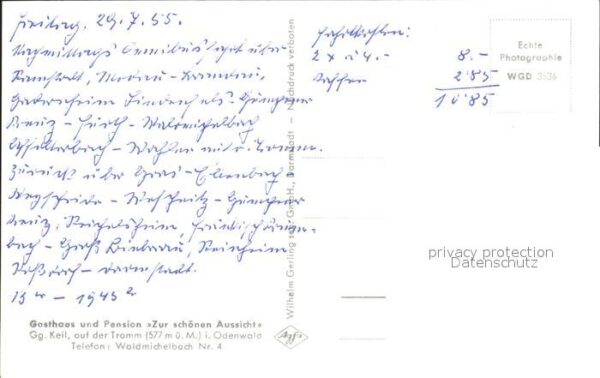 Freitag, 29.7.55.
Nachmittags Omnibusfahrt über
Ramstadt, Modau - Brandau,
Gadernheim Lindenfels - Gumpener
Kreuz - Fürth - Waldmichelbach
Affolterbach - Wahlen mit Tromm.
Zurück über Gras - Ellenbach
Weschnitz - Gumpener
Kreuz, Reichelsheim, Fränkisch Crum-
bach - Groß Bieberau, Reinheim
Roßdorf - Darmstadt.
13 - 1945
Fahrtkosten:
2 x à 4.- 8.-
Kaffee 2.85
10.85
Echte
Photographie
WGD 3536
Wilhelm Gerling G.m.b.H., Darmstadt — Nachdruck verboten
Agfa
privacy protection
Datenschutz
Gasthaus und Pension »Zur schönen Aussicht«
Gg. Keil, auf der Tromm (577 m ü. M.) i. Odenwald
Telefon: Waldmichelbach Nr. 4